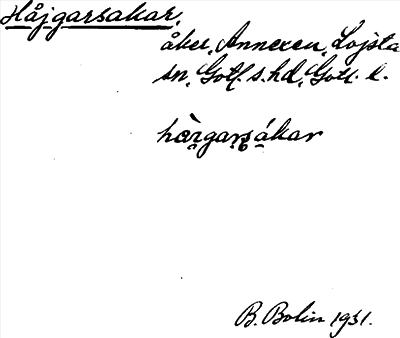 Håjgarsakar,
åker, Annexen, Lojsta
sn, Gotl. s. hd, Gotl. l.
hàrgarsákar
B. Bolin 1931.